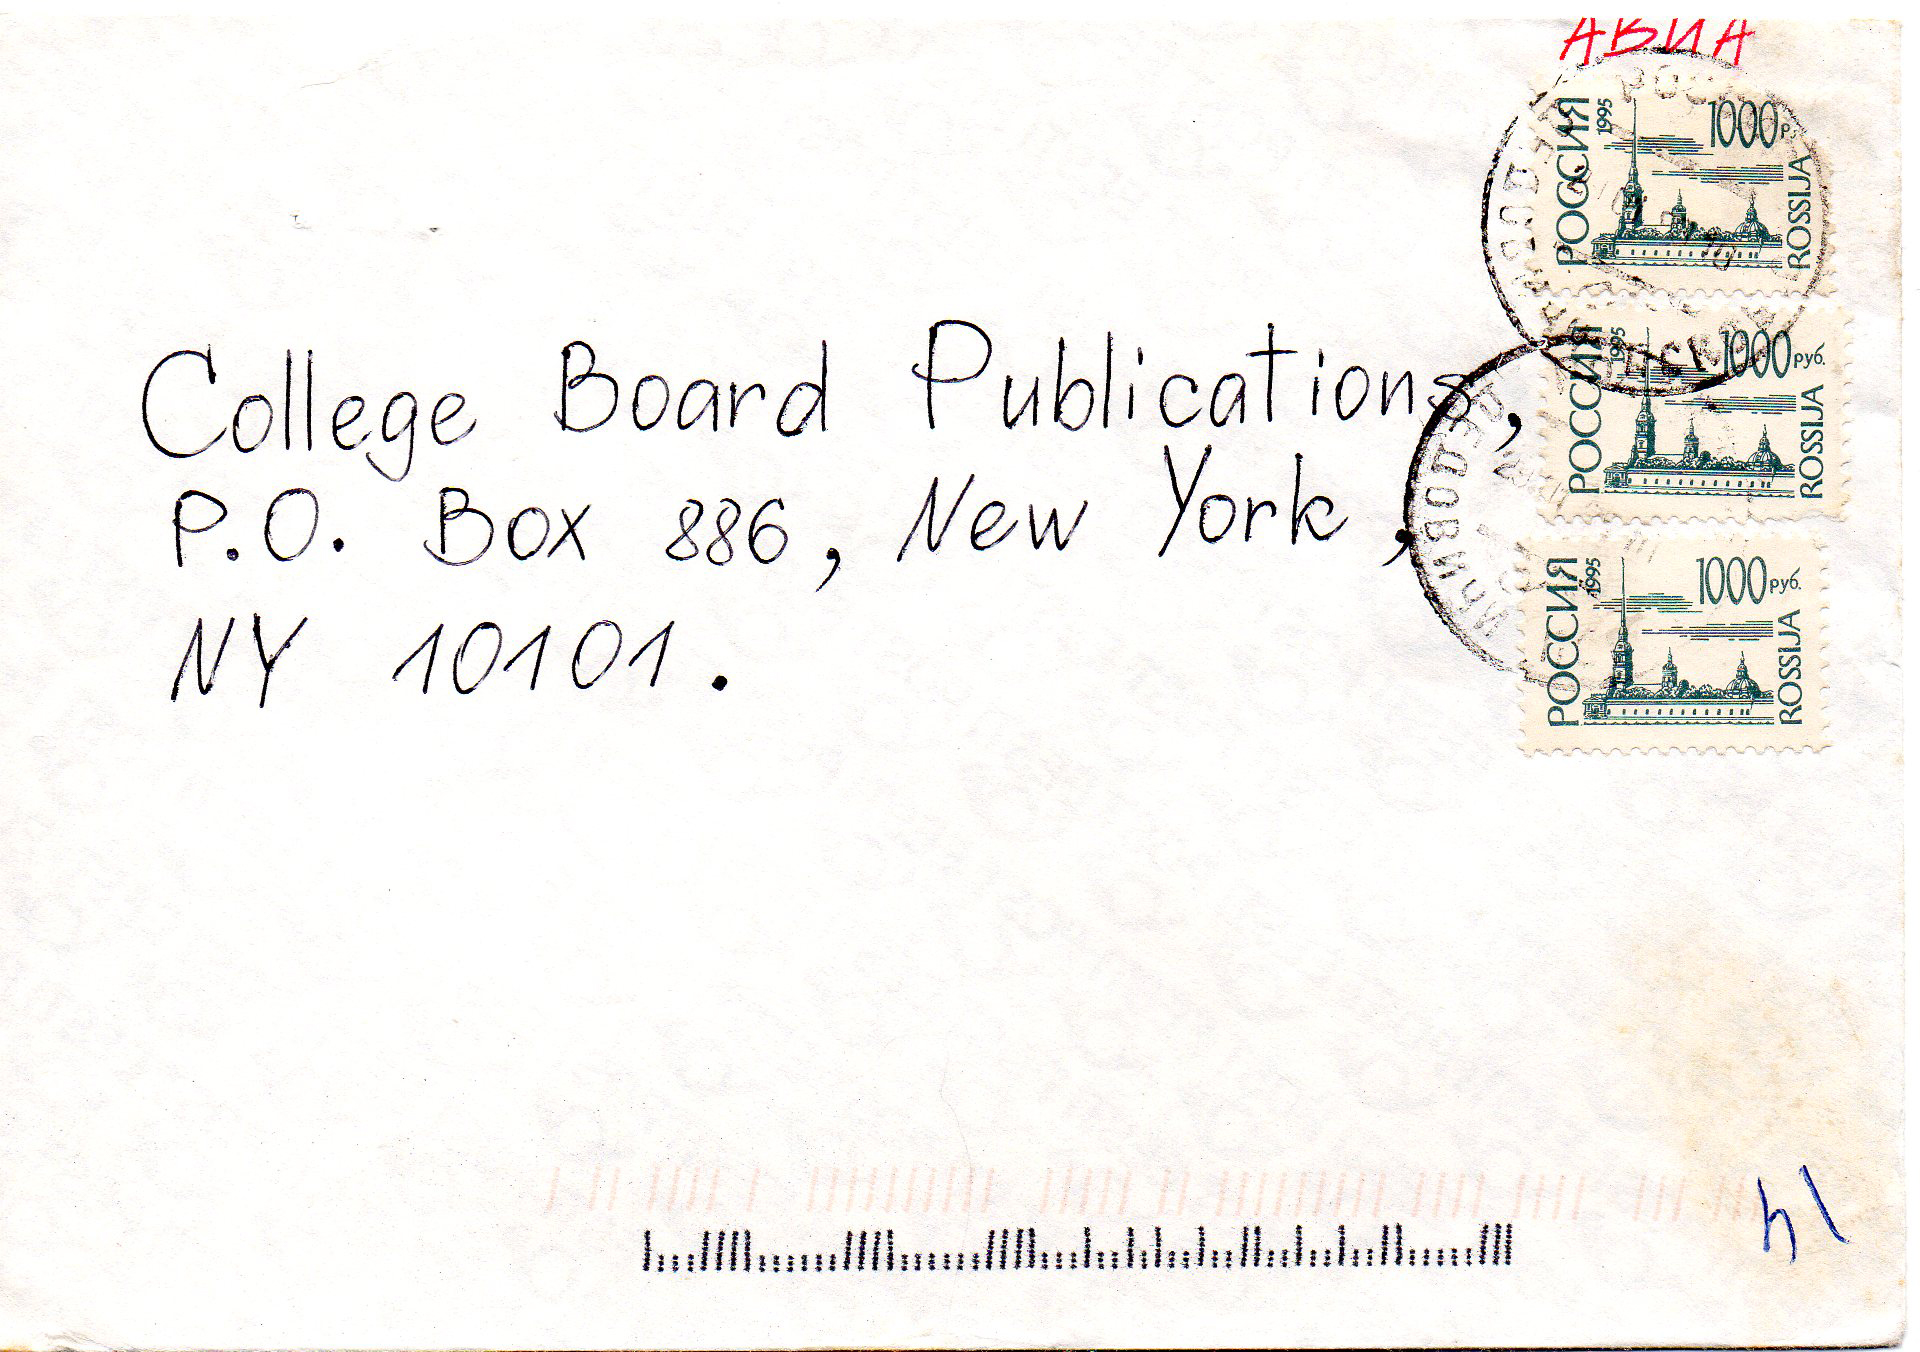 АВИА
РОССИЯ
1995
1000
ROSSIJA
РОССИЯ
1995
1000 руб.
ROSSIJA
РОССИЯ
1995
1000 руб.
ROSSIJA
College Board Publications,
P.O. Box 886, New York,
NY 10101.
14